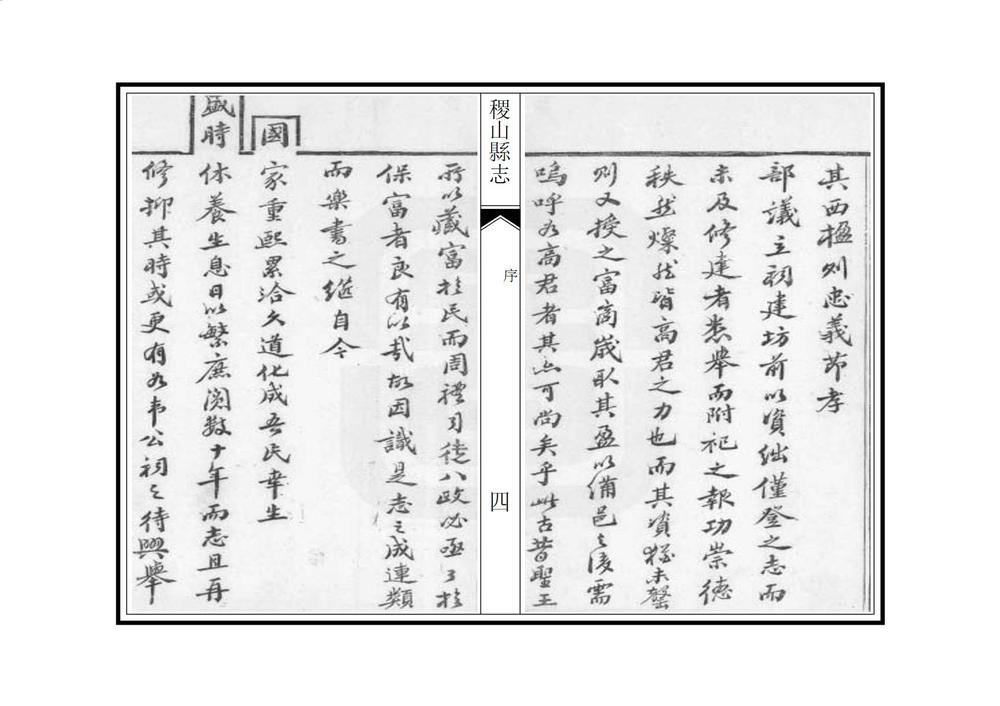 其西楹則忠義節孝
部議立祠建坊前以資絀僅登之志而
未及修建者悉舉而附祀之報功崇德
秩然燦然皆高君之力也而其資猶未罄
則又授之富商歲取其盈以備邑之後需
嗚呼如高君者其亦可尚矣乎此古昔聖王
稷山縣志
序
四
所以藏富於民而周禮司徒八政必亟亟於
保富者良有以哉故因識是志之成連類
而樂書之繼自今
國
家重熙累洽久道化成吾民幸生
盛時
休養生息日以繁庶閱數十年而志且再
修抑其時或更有如韋公祠之待興舉